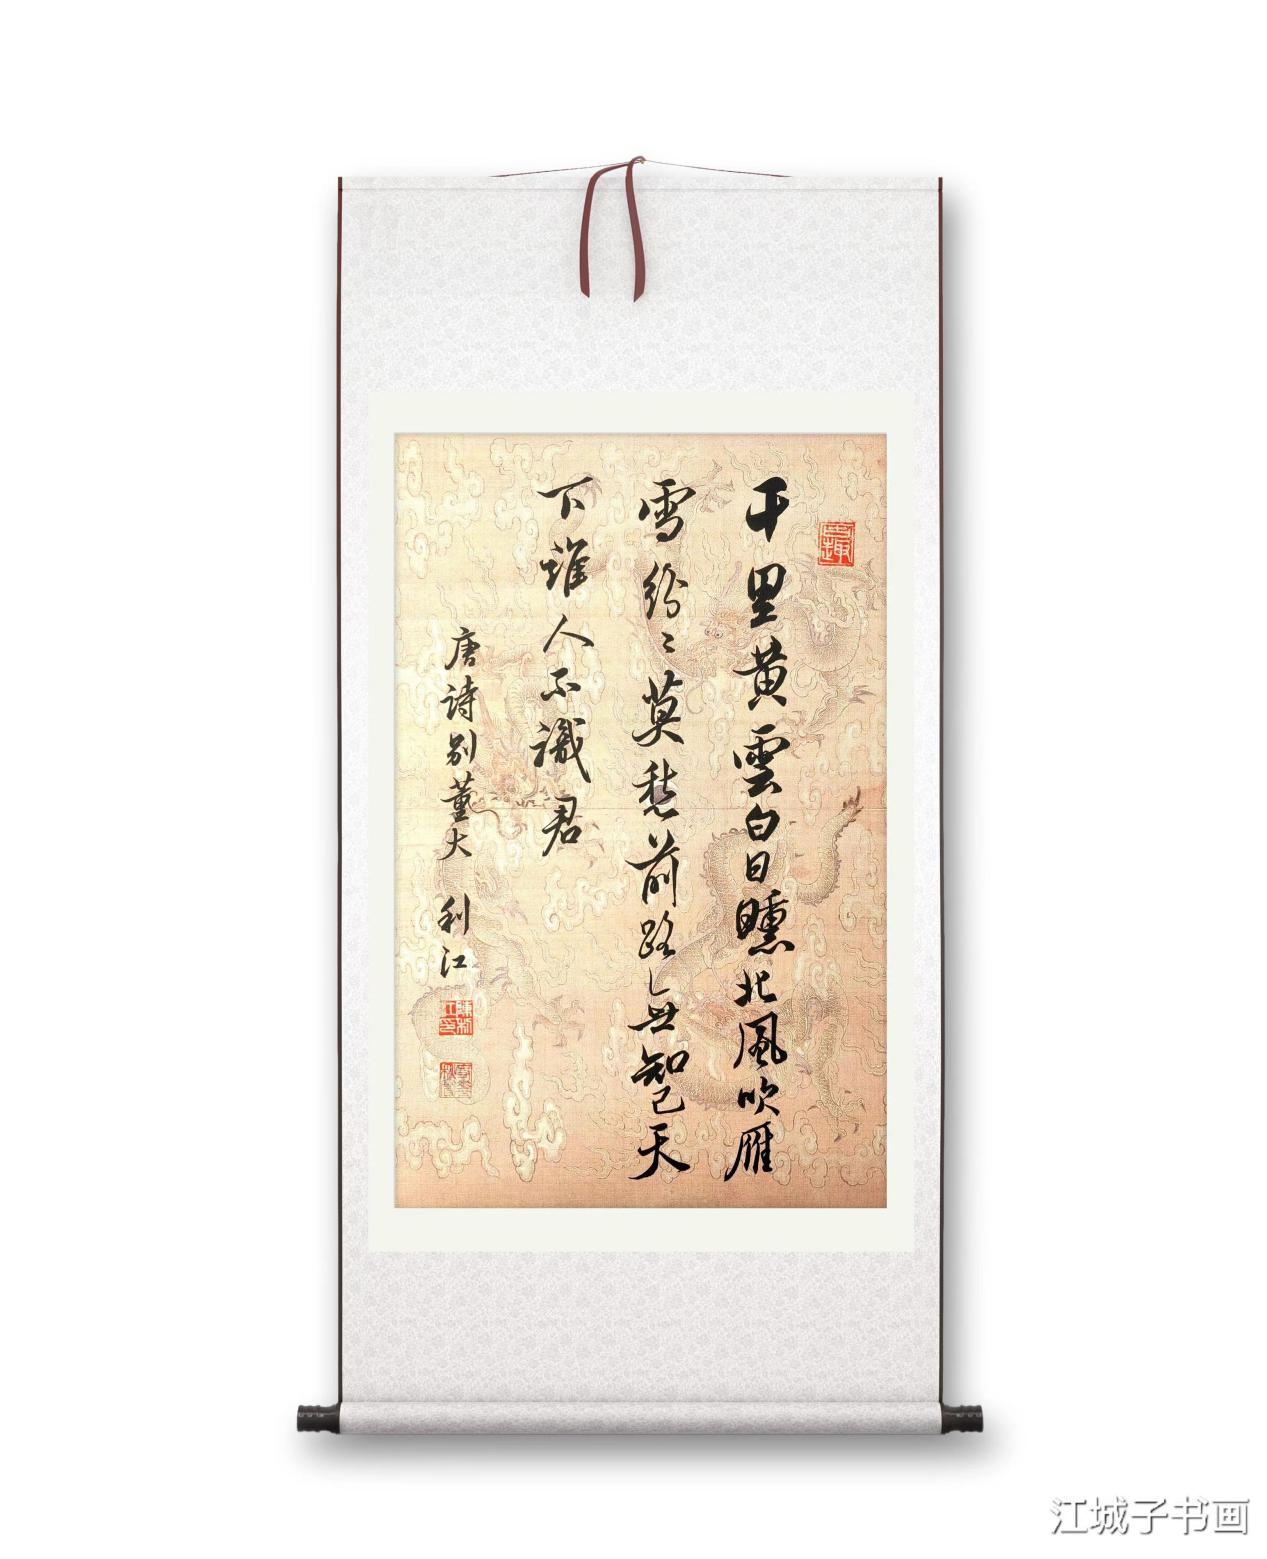 千里黄雲白日曛北風吹雁
雪紛〻莫愁前路無知己天
下誰人不識君
唐诗别董大 利江
江城子书画